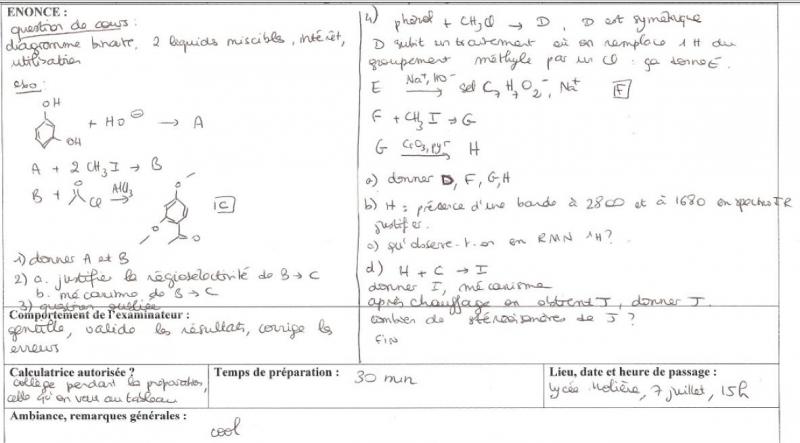 ENONCE :
question de cours :
diagramme binaire, 2 liquides miscibles, intérêt,
utilisation
exo :
OH
OH
+ HO⊖ → A
A + 2 CH₃I → B
B + O Cl AlCl₃ → O O O C
1) donner A et B
2) a. justifier la régiosélectivité de B → C
b. mécanisme de B → C
3) question oubliée
4) phénol + CH₃Cl → D, D est symétrique
D subit un traitement où on remplace 1 H du
groupement méthyle par un Cl : ça donne E.
E Na⁺, HO⁻ → sel C₇H₇O₂⁻, Na⁺ F
F + CH₃I → G
G CrO₃, pyr → H
a) donner D, F, G, H
b) H : présence d'une bande à 2800 et à 1680 en spectro IR
justifier.
c) qu'observe-t-on en RMN 1H ?
d) H + C → I
donner I, mécanisme
après chauffage on obtient J, donner J.
combien de stéréoisomères de J ?
FIN
Comportement de l'examinateur :
gentille, valide les résultats, corrige les
erreurs
Calculatrice autorisée ?
collège pendant la préparation,
celle qu'on veut au tableau
Temps de préparation :
30 min
Lieu, date et heure de passage :
lycée Molière, 7 juillet, 15h
Ambiance, remarques générales :
cool